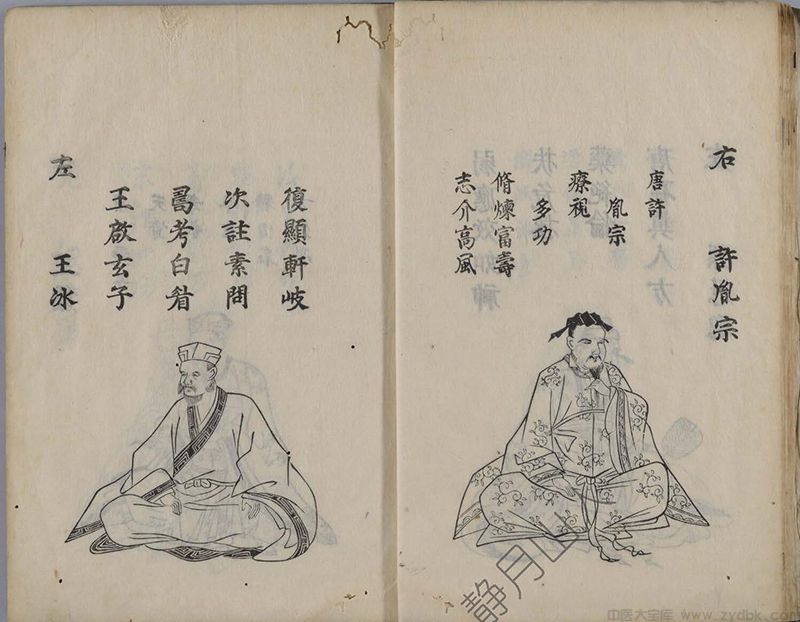 右 許胤宗
唐許
胤宗
療視
多功
脩煉富壽
志介高風
左 王冰
王啟玄子
考白眉
次註素問
復顯軒岐
静月
中医大宝库 www.zydbk.com